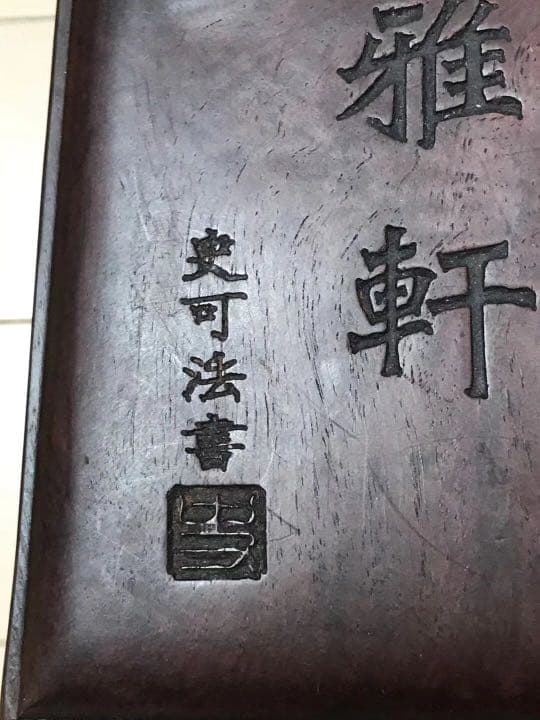 雅軒
史可法書